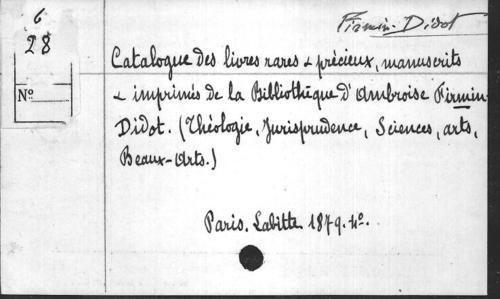 6
28
Nº
Firmin-Didot
Catalogue des livres rares & précieux, manuscrits
& imprimés de la Bibliothèque d'Ambroise Firmin-
Didot. (Théologie, Jurisprudence, Sciences, arts,
Beaux-Arts.)
Paris. Labitte 1879. 4º.